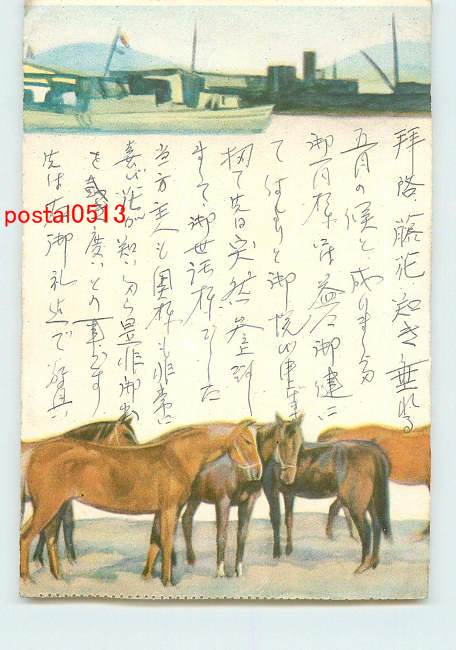 拝啓 藤花 咲き垂れる
五月の候と成りました
御一同様には益々御健に
て 何よりと御悦び申ます
扨て先日は突然参上致し
まして御世話様でした
当方主人も 同様も非常に
喜び 花が 知
を 度いとの事
先は右御礼迄で 敬具
postal0513